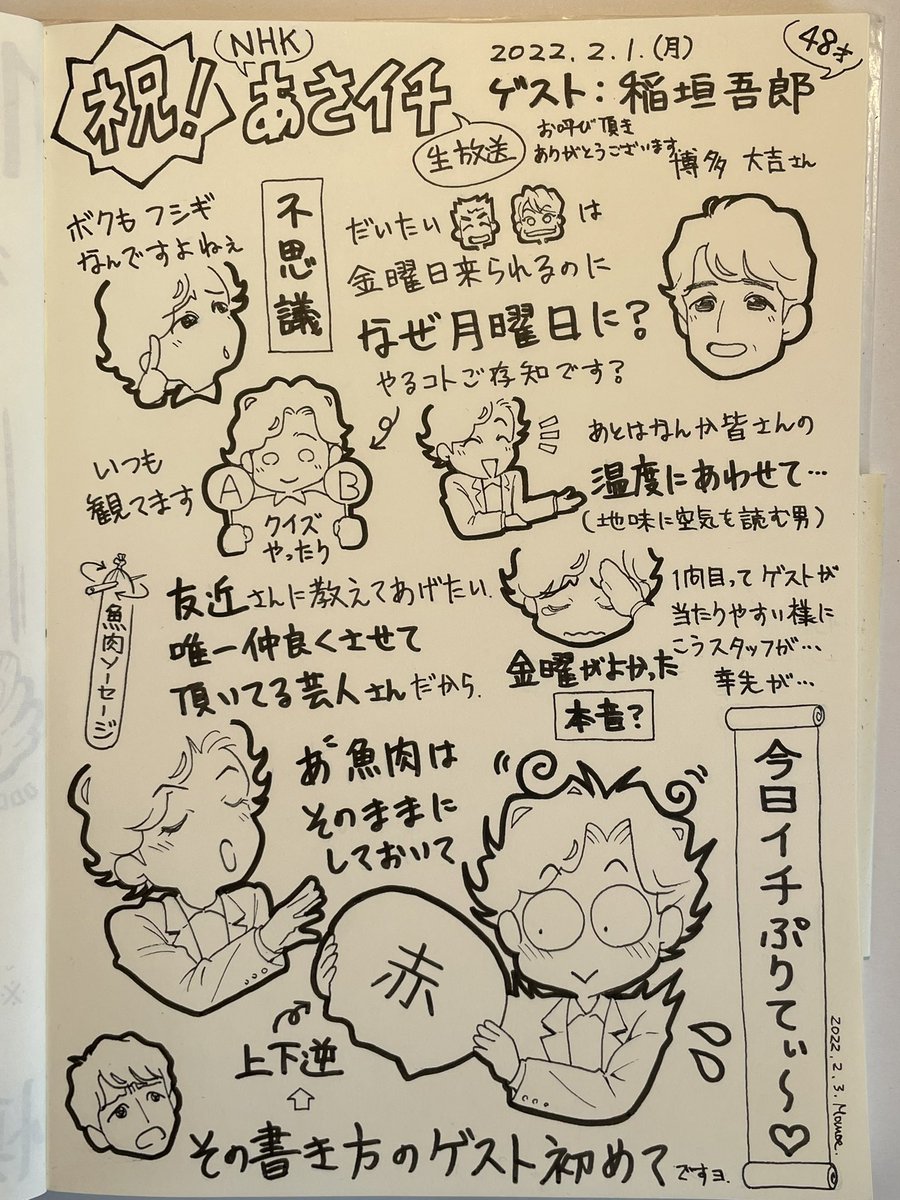 祝!
NHK
あさイチ
2022.2.1.(月)
48才
ゲスト:稲垣吾郎
生放送
お呼び頂き
ありがとうございます
博多 大吉さん
ボクも フシギ
なんですよねぇ
不思議
だいたい は
金曜日来られるのに
なぜ月曜日に?
やるコトご存知です?
いつも
観てます
A B
クイズ
やったり
あとはなんか皆さんの
温度にあわせて…
(地味に空気を読む男)
魚肉ソーセージ
友近さんに教えてあげたい
唯一仲良くさせて
頂いてる芸人さんだから
金曜がよかった
本音?
1問目って ゲストが
当たりやすい様に
こうスタッフが…
幸先が…
あ゛魚肉は
そのままに
しておいて
赤
上下逆
その書き方のゲスト初めてですヨ.
今日イチぷりてぃ〜♡
2022.2.3.Momoe.